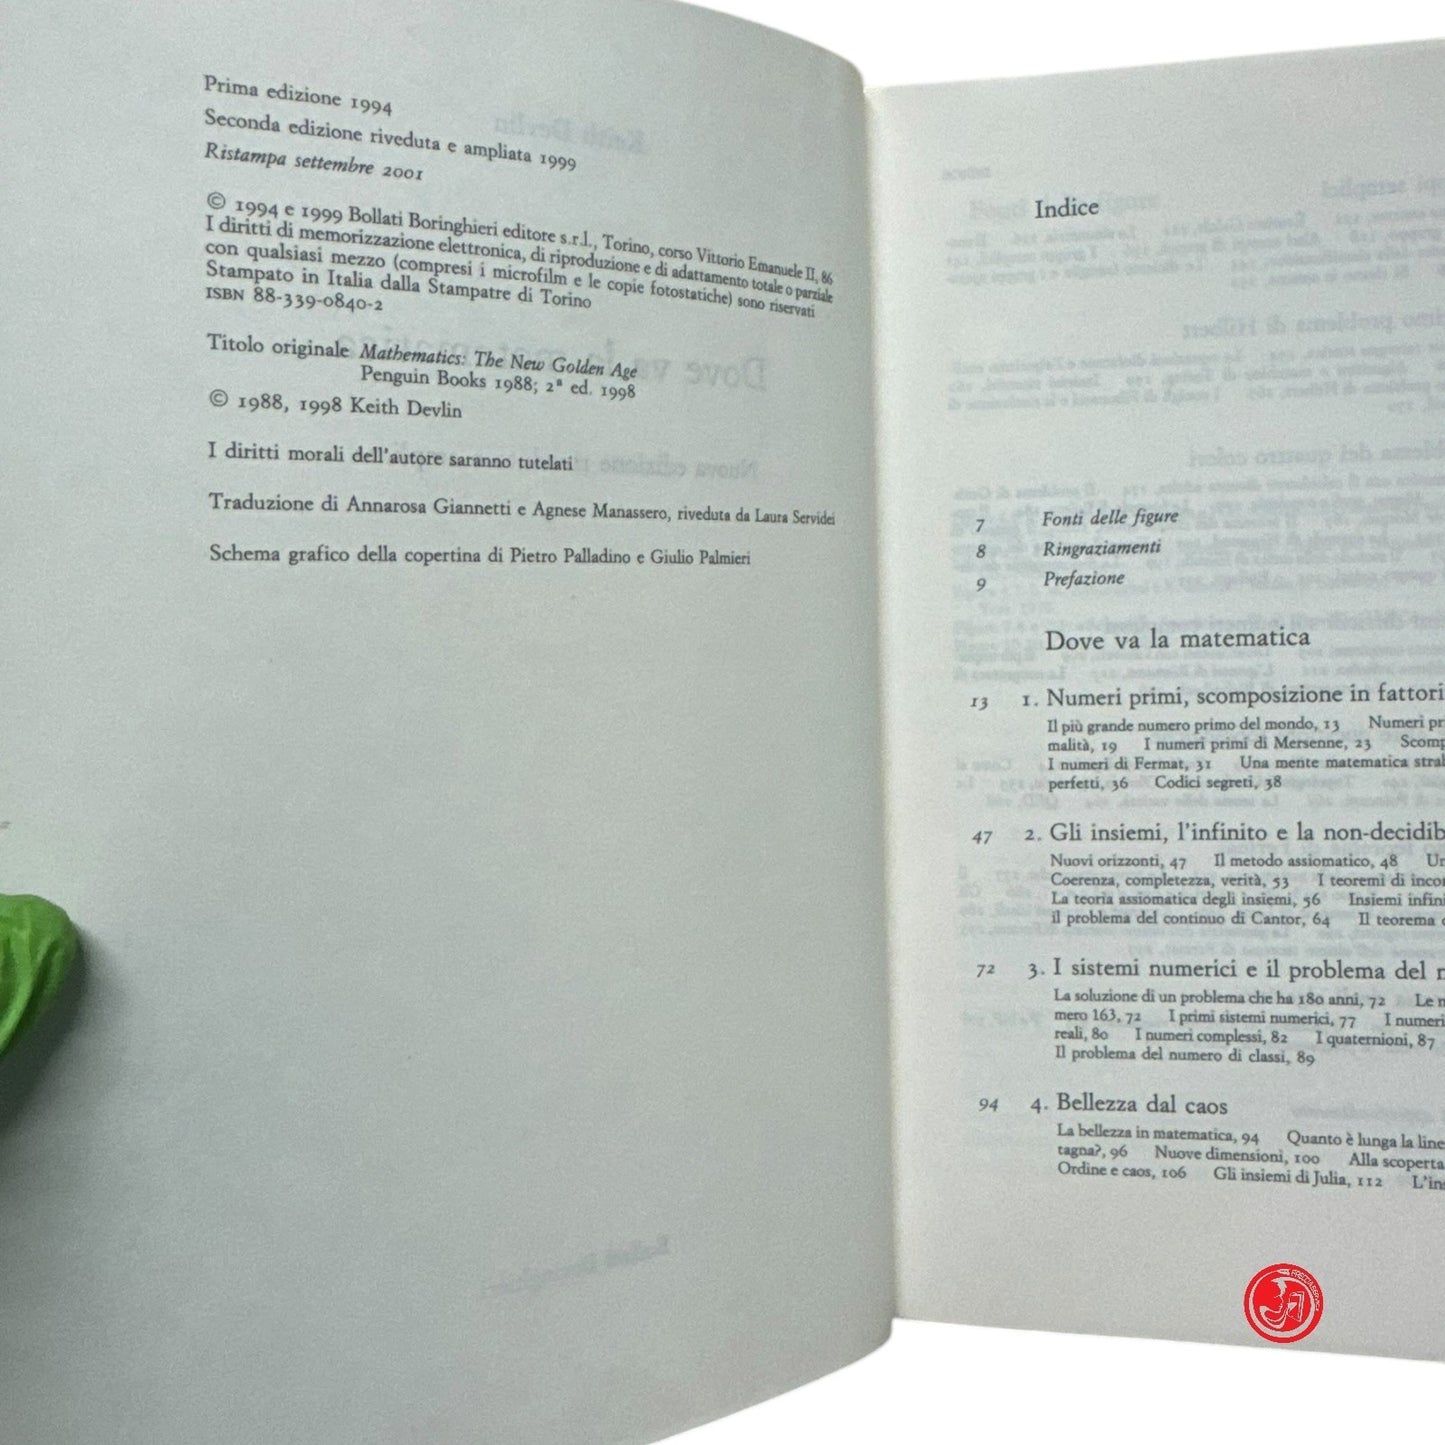 Prima edizione 1994
Seconda edizione riveduta e ampliata 1999
Ristampa settembre 2001
© 1994 e 1999 Bollati Boringhieri editore s.r.l., Torino, corso Vittorio Emanuele II, 86
I diritti di memorizzazione elettronica, di riproduzione e di adattamento totale o parziale
con qualsiasi mezzo (compresi i microfilm e le copie fotostatiche) sono riservati
Stampato in Italia dalla Stampatre di Torino
ISBN 88-339-0840-2
Titolo originale Mathematics: The New Golden Age
Penguin Books 1988; 2ª ed. 1998
© 1988, 1998 Keith Devlin
I diritti morali dell'autore saranno tutelati
Traduzione di Annarosa Giannetti e Agnese Manassero, riveduta da Laura Servidei
Schema grafico della copertina di Pietro Palladino e Giulio Palmieri
Indice
7 Fonti delle figure
8 Ringraziamenti
9 Prefazione
Dove va la matematica
13 1. Numeri primi, scomposizione in fattori
Il più grande numero primo del mondo, 13 Numeri pr
malità, 19 I numeri primi di Mersenne, 23 Scomp
I numeri di Fermat, 31 Una mente matematica stral
perfetti, 36 Codici segreti, 38
47 2. Gli insiemi, l'infinito e la non-decidib
Nuovi orizzonti, 47 Il metodo assiomatico, 48 Un
Coerenza, completezza, verità, 53 I teoremi di incom
La teoria assiomatica degli insiemi, 56 Insiemi infini
il problema del continuo di Cantor, 64 Il teorema
72 3. I sistemi numerici e il problema del n
La soluzione di un problema che ha 180 anni, 72 Le n
mero 163, 72 I primi sistemi numerici, 77 I numeri
reali, 80 I numeri complessi, 82 I quaternioni, 87
Il problema del numero di classi, 89
94 4. Bellezza dal caos
La bellezza in matematica, 94 Quanto è lunga la line
tagna?, 96 Nuove dimensioni, 100 Alla scoperta
Ordine e caos, 106 Gli insiemi di Julia, 112 L'ins